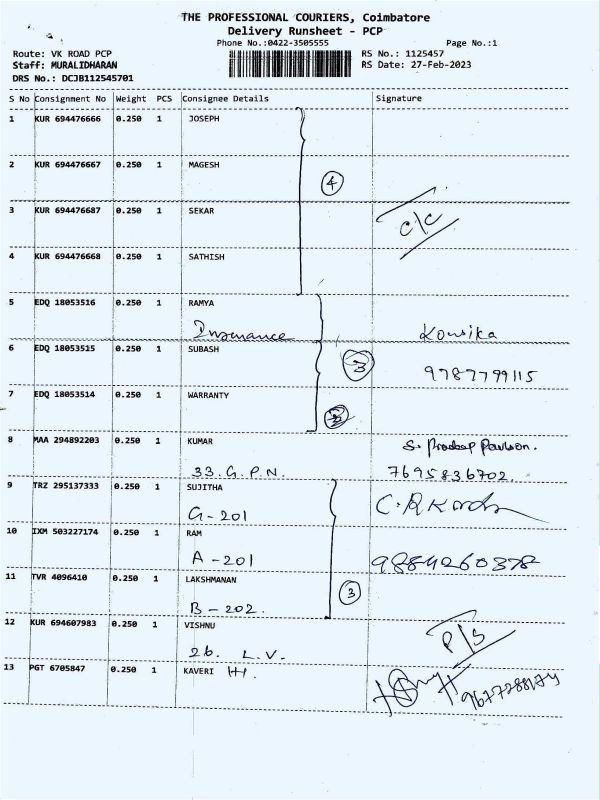 THE PROFESSIONAL COURIERS, Coimbatore
Delivery Runsheet - PCP
Phone No.:0422-3505555 Page No.:1
Route: VK ROAD PCP RS No.: 1125457
Staff: MURALIDHARAN RS Date: 27-Feb-2023
DRS No.: DCJB112545701
S No Consignment No Weight PCS Consignee Details Signature
1 KUR 694476666 0.250 1 JOSEPH
2 KUR 694476667 0.250 1 MAGESH
4
3 KUR 694476687 0.250 1 SEKAR
C/C
4 KUR 694476668 0.250 1 SATHISH
5 EDQ 18053516 0.250 1 RAMYA
Insurance Kowsika
6 EDQ 18053515 0.250 1 SUBASH
3 9787799115
7 EDQ 18053514 0.250 1 WARRANTY
8 MAA 294892203 0.250 1 KUMAR S. Pradeep
33. G. P. N. 7695836702.
9 TRZ 295137333 0.250 1 SUJITHA
G-201
10 IXM 503227174 0.250 1 RAM
A-201 9884260378
11 TVR 4096410 0.250 1 LAKSHMANAN
3
B-202.
12 KUR 694607983 0.250 1 VISHNU
26. L.V. P/S
13 PGT 6705847 0.250 1 KAVERI